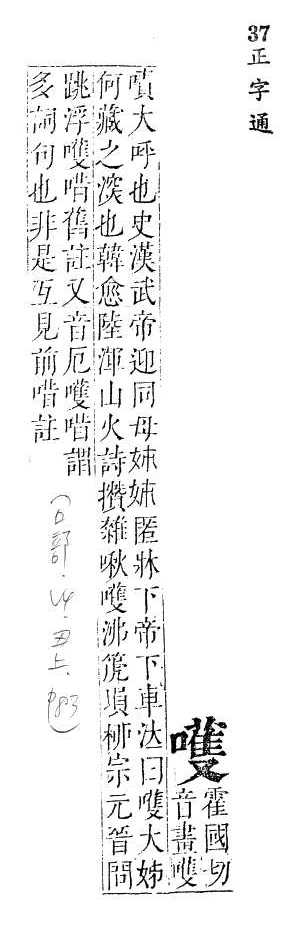 37
正字通
嚄
霍國切
音畫嚄
嘖大呼也史漢武帝迎同母姊姊匿牀下帝下車泣曰嚄大姊
何藏之深也韓愈陸渾山火詩攢雜啾嚄沸箎塤柳宗元晉問
跳浮嚄唶舊註又音厄嚄唶謂
多詞句也非是互見前唶註
(口部.丑上.p83)